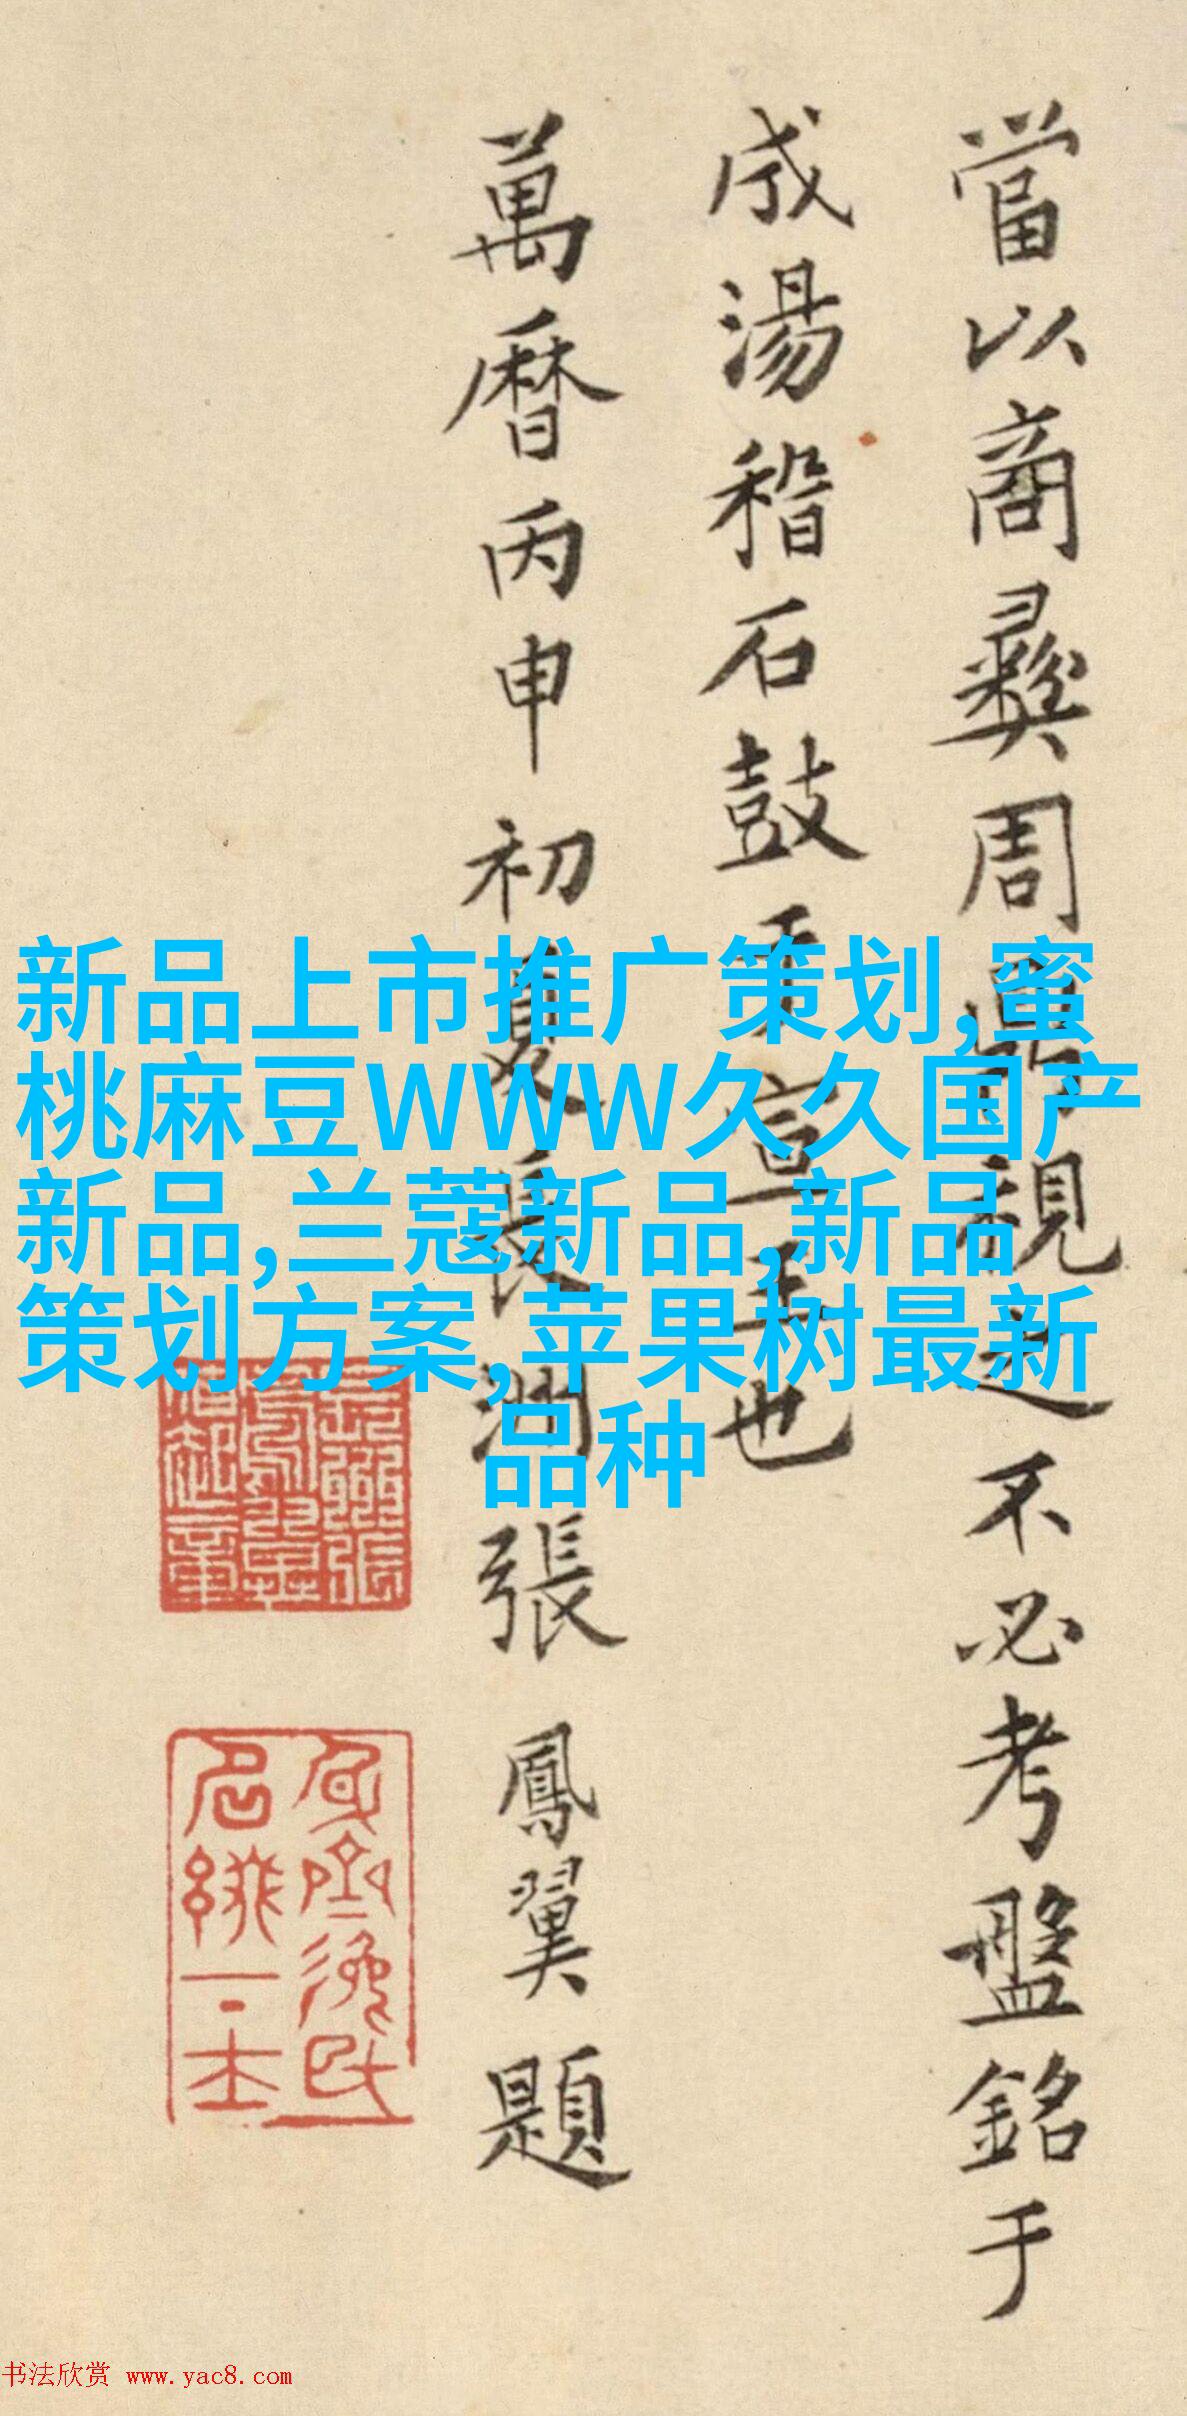 當以商彝周鼎視之不必考盤銘于
成湯稽石鼓于宣王也
萬曆丙申初夏長洲張鳳翼題
新品上市推广策划,蜜
桃麻豆WWW久久国产
新品,兰蔻新品,新品
策划方案,苹果树最新
品种
书法欣赏 www.yac8.com